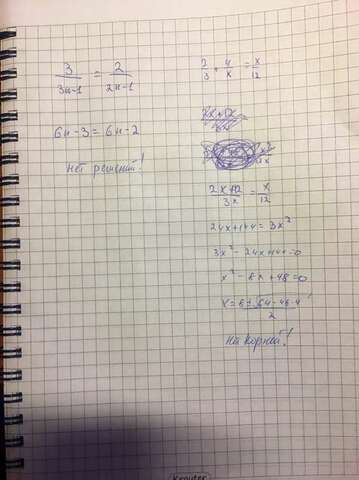 3/(3n-1) = 2/(2n-1)
6n-3 = 6n-2
нет решений!
2/3 + 4/x = x/12
(2x+12)/3x = x/12
24x+144 = 3x²
3x² - 24x+144=0
x² - 8x + 48=0
x = (8 ± √64-48·4)/2
нет корней!
Kroyter